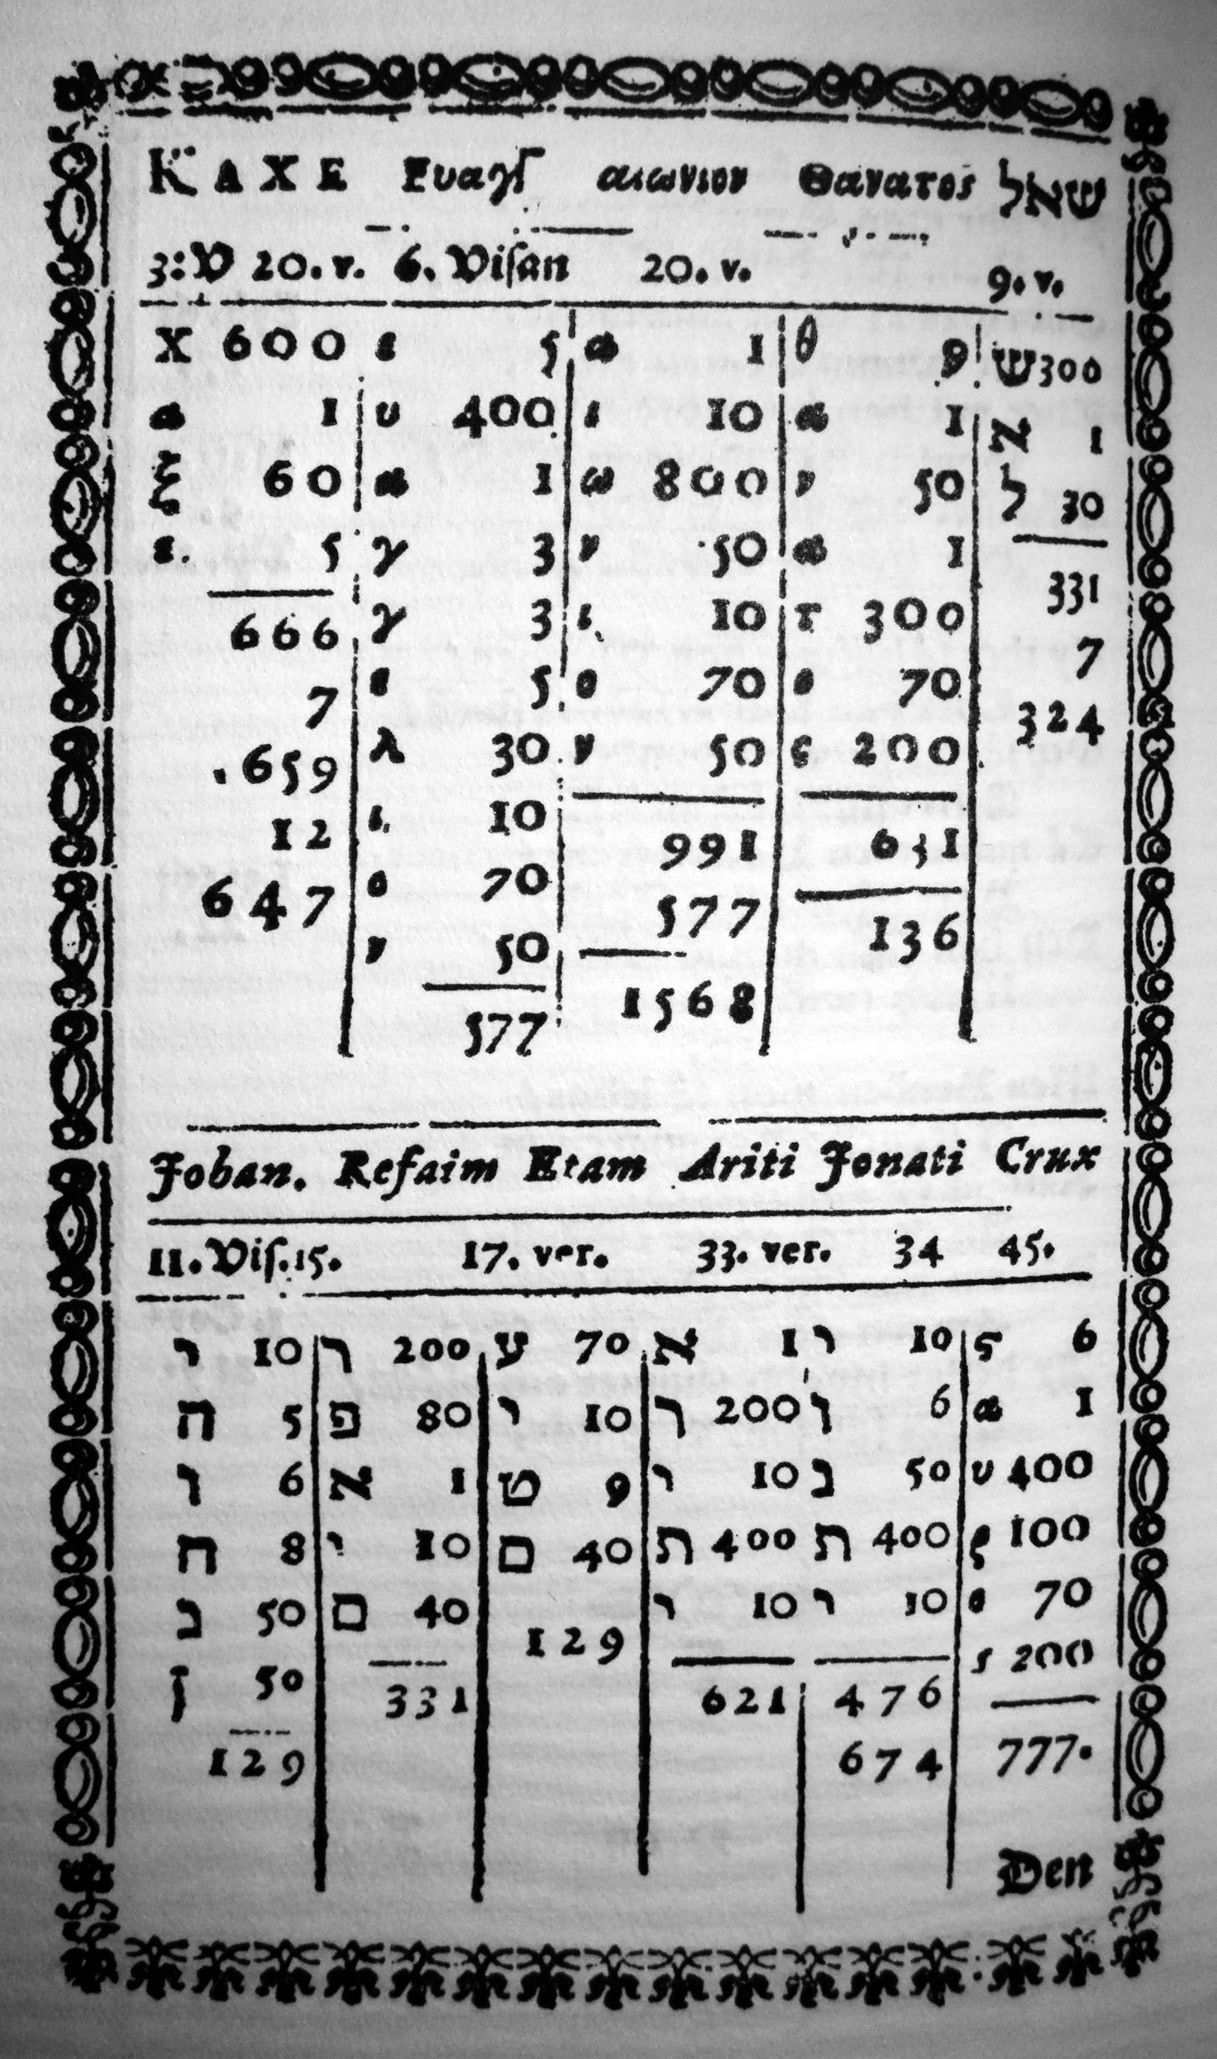 KAXE Ευαγγ αιωνιον Θανατος שאל
3: V 20. v. 6. Viſan 20. v. 9. v.
X 600 ε 5 α 1 θ 9 ש 300
α 1 υ 400 ι 10 α 1 א 1
ξ 60 α 1 ω 800 ν 50 ל 30
ε. 5 γ 3 ν 50 α 1 331
666 γ 3 ι 10 τ 300 7
7 ε 5 ο 70 ο 70 324
659 λ 30 ν 50 ς 200
12 ι 10 991 631
647 ο 70 577 136
ν 50 1568
577
Johan. Refaim Etam Ariti Jonati Crux
11. Viſ. 15. 17. ver. 33. ver. 34 45.
י 10 ר 200 ע 70 א 1 י 10 ϛ 6
ה 5 פ 80 י 10 ר 200 ו 6 α 1
ו 6 א 1 ט 9 י 10 נ 50 υ 400
ח 8 י 10 ם 40 ת 400 ת 400 ρ 100
נ 50 ם 40 129 י 10 י 10 ο 70
ן 50 331 621 476 ς 200
129 674 777.
Den